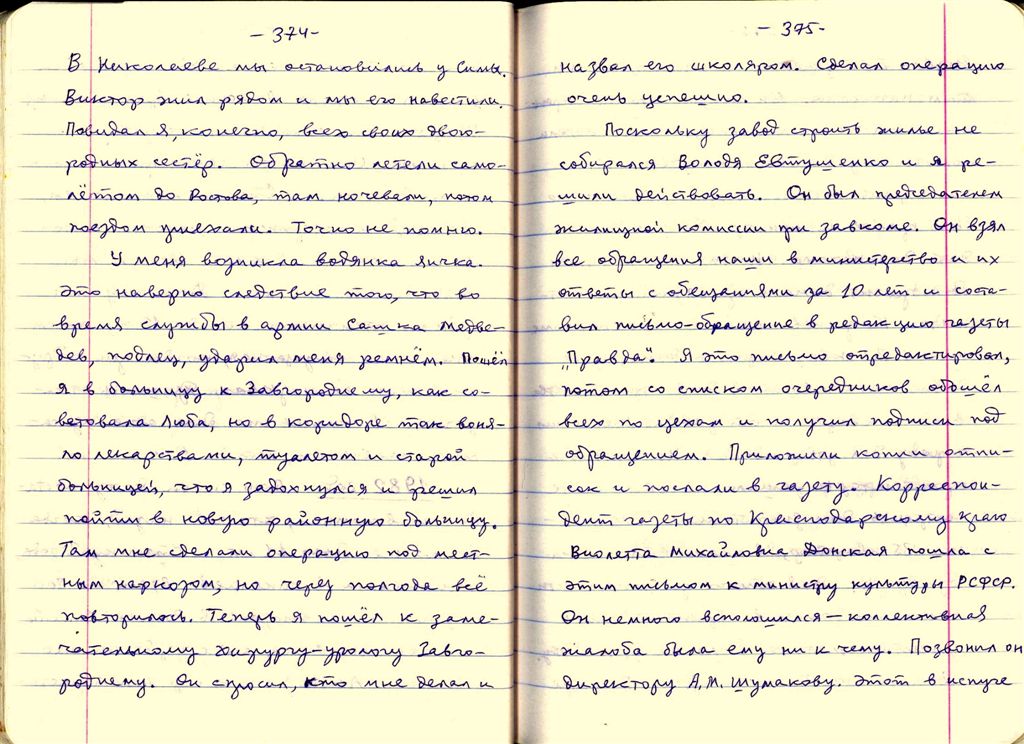 -374-
В Николаеве мы остановились у Симы.
Виктор жил рядом и мы его навестили.
Повидал я, конечно, всех своих двою-
родных сестёр. Обратно летели само-
лётом до Ростова, там ночевали, потом
поездом приехали. Точно не помню.
У меня возникла водянка яичка.
Это наверно следствие того, что во
время службы в армии Сашка Медве-
дев, подлец, ударил меня ремнём. Пошёл
я в больницу к Завгороднему, как со-
ветовала Люба, но в коридоре так воня-
ло лекарствами, туалетом и старой
больницей, что я задохнулся и решил
пойти в новую районную больницу.
Там мне сделали операцию под мест-
ным наркозом, но через полгода всё
повторилось. Теперь я пошёл к заме-
чательному хирургу-урологу Завго-
роднему. Он спросил, кто мне делал и
-375-
назвал его школяром. Сделал операцию
очень успешно.
Поскольку завод строить жилье не
собирался Володя Евтушенко и я ре-
шили действовать. Он был председателем
жилищной комиссии при завкоме. Он взял
все обращения наши в министерство и их
ответы с обещаниями за 10 лет и соста-
вил письмо-обращение в редакцию газеты
„Правда". Я это письмо отредактировал,
потом со списком очередников обошёл
всех по цехам и получил подписи под
обращением. Приложили копии отпи-
сок и послали в газету. Корреспон-
дент газеты по Краснодарскому краю
Виолетта Михайловна Донская пошла с
этим письмом к министру культуры РСФСР.
Он немного всполошился – коллективная
жалоба была ему ни к чему. Позвонил он
директору А.М. Шумакову. Этот в испуге